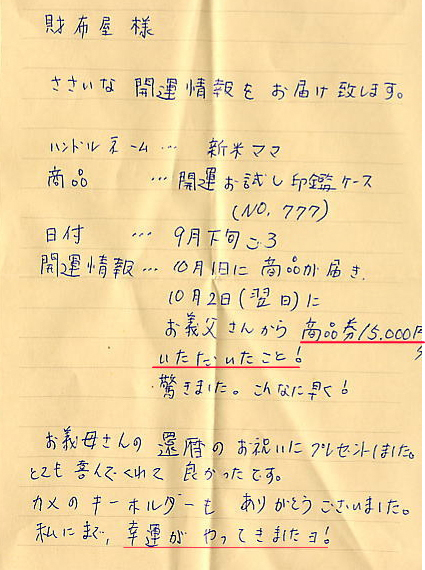 財布屋 様
ささいな 開運情報を お届け致します。
ハンドルネーム… 新米ママ
商品 …開運お試し印鑑ケース
(NO. 777)
日付 … 9月下旬ごろ
開運情報… 10月1日に 商品が届き、
10月2日(翌日)に
お義父さんから 商品券15.000円
いただいたこと!
驚きました。こんなに早く!
お義母さんの 還暦のお祝いに プレゼントしました。
とても 喜んでくれて 良かったです。
カメのキーホルダーも ありがとうございました。
私にまで、幸運が やってきましたヨ!